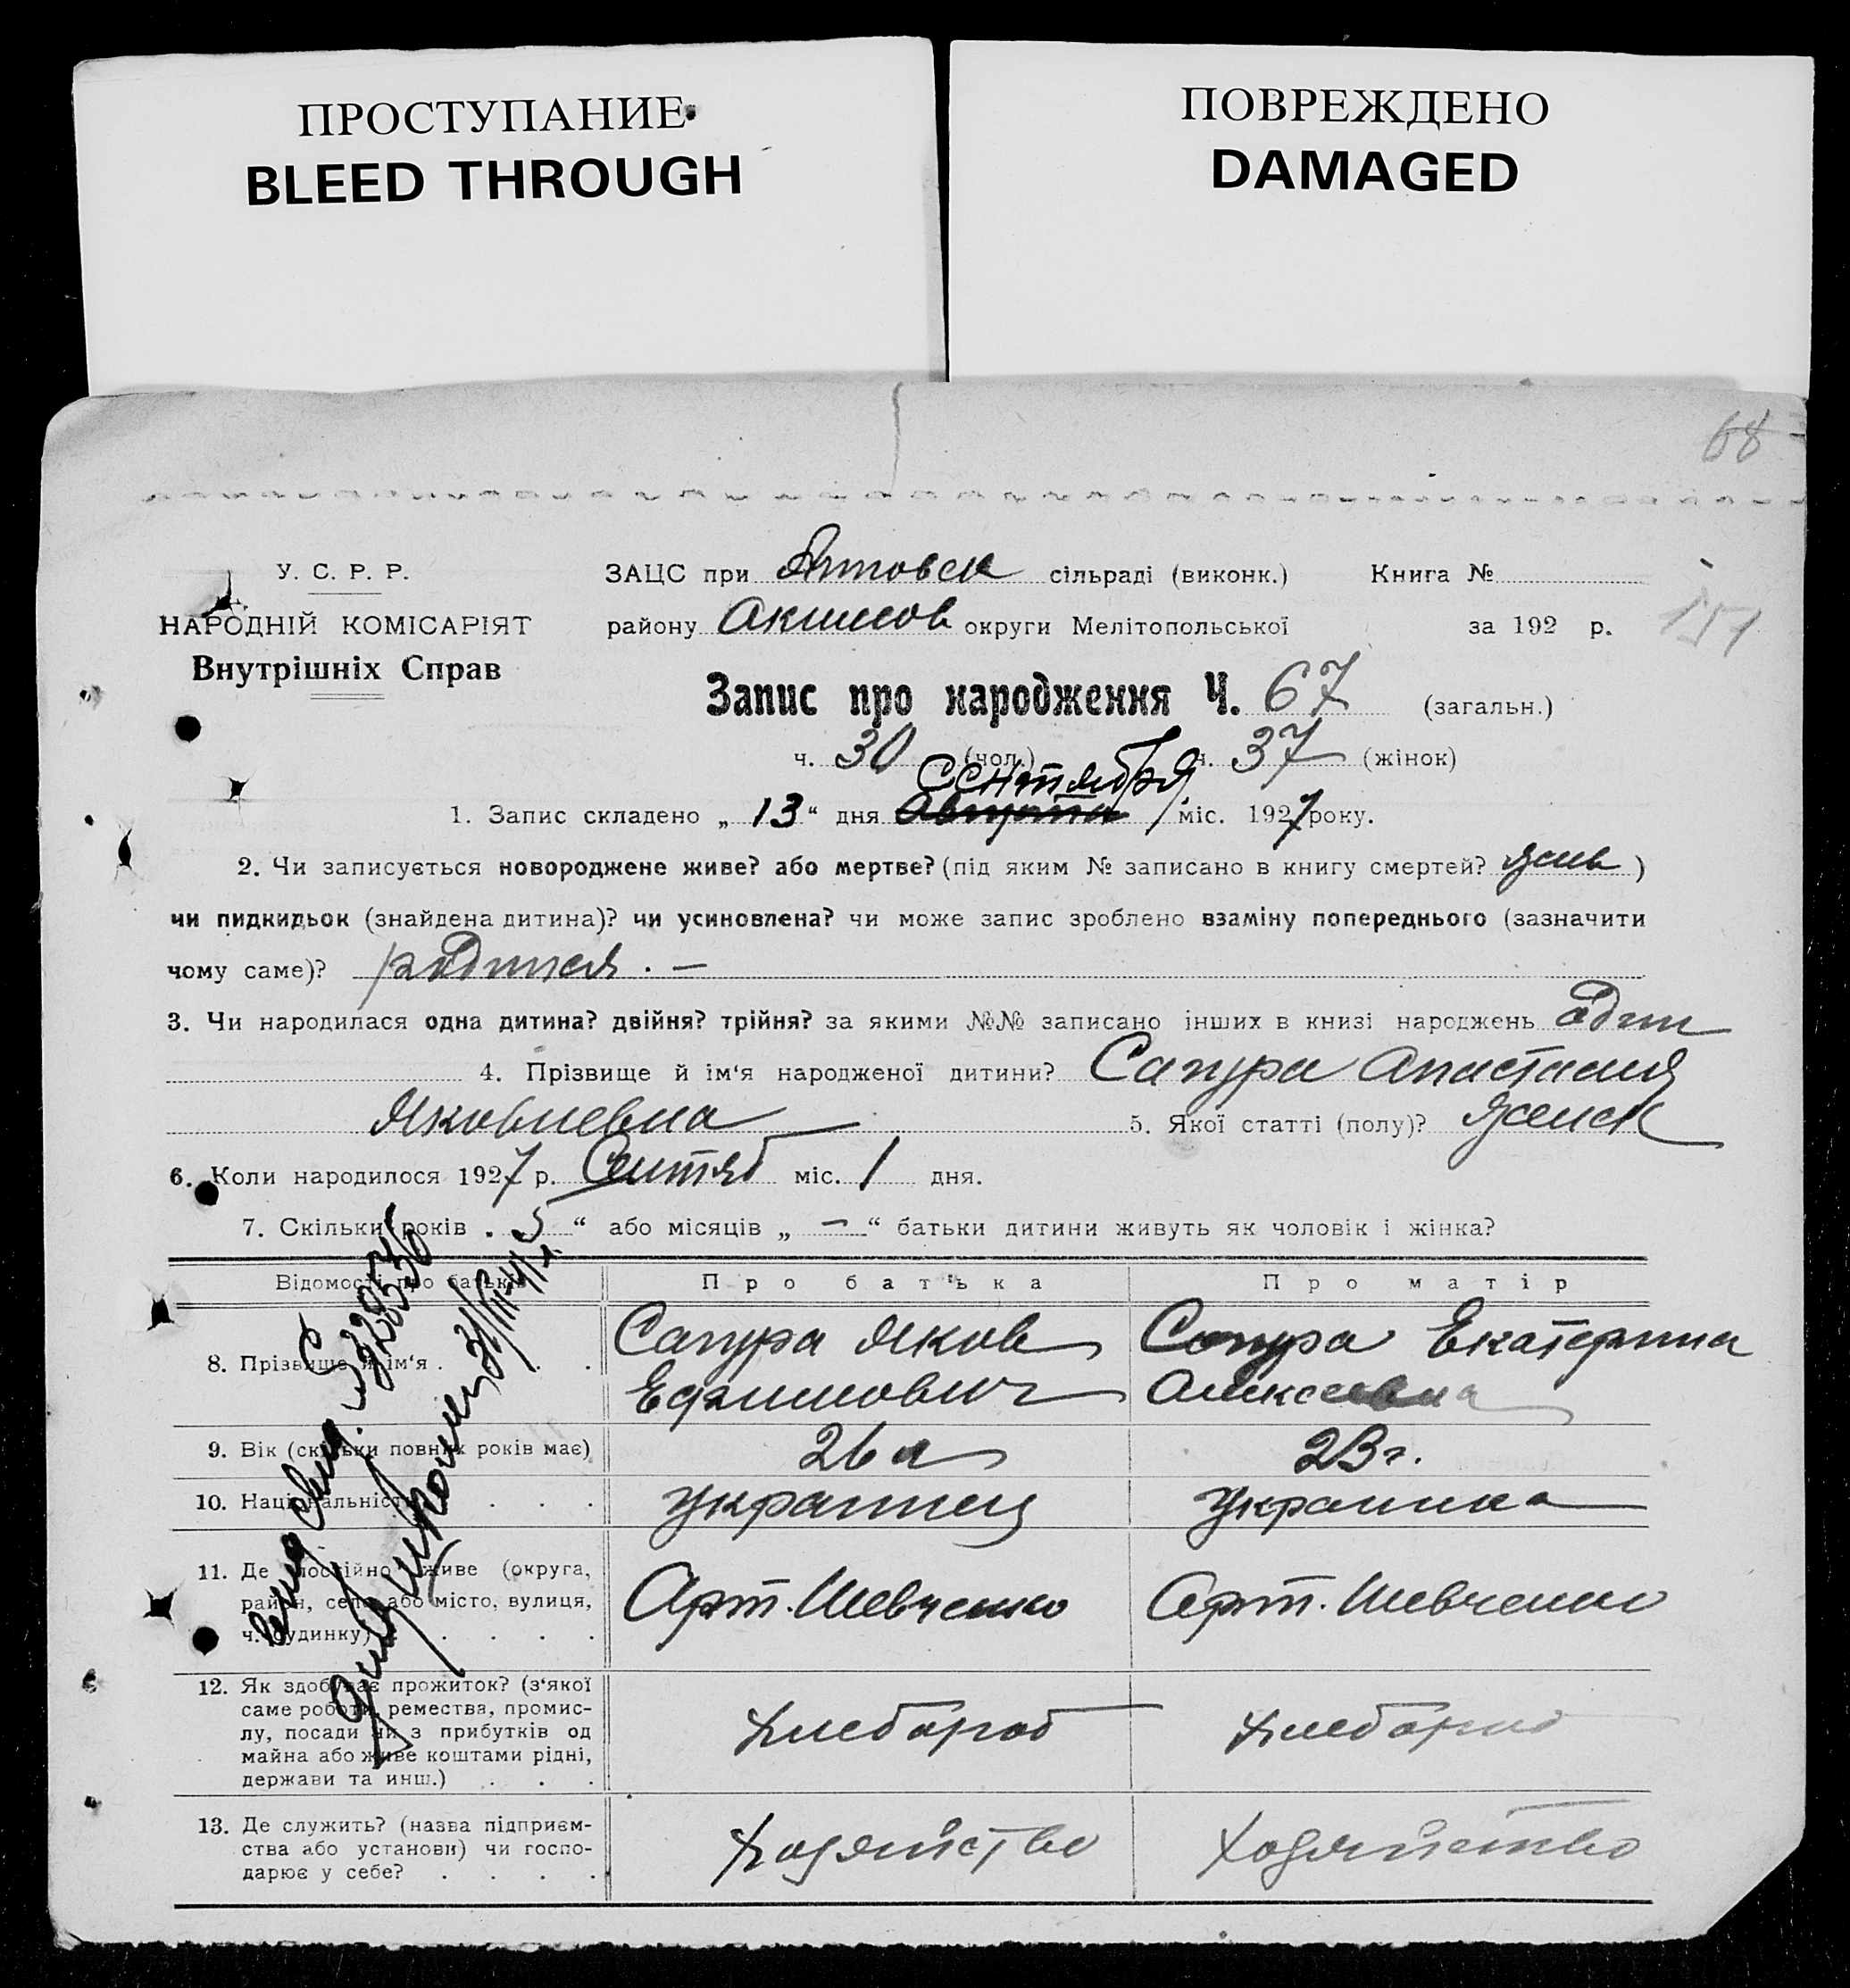 ПРОСТУПАНИЕ
BLEED THROUGH
ПОВРЕЖДЕНО
DAMAGED
68
У. С. Р. Р.
НАРОДНІЙ КОМІСАРІЯТ
Внутрішніх Справ
ЗАЦС при сільраді (виконк.) Книга №
району Акимов округи Мелітопольської за 192 р.
151
Запис про народження Ч. 67 (загальн.)
ч. 30 (чол.) ч. 37 (жінок)
Сентября
1. Запис складено „ 13 “ дня Августа міс. 1927 року.
2. Чи записується новороджене живе? або мертве? (під яким № записано в книгу смертей? жив )
чи пидкидьок (знайдена дитина)? чи усиновлена? чи може запис зроблено взаміну попереднього (зазначити
чому саме)? родился . —
3. Чи народилася одна дитина? двійня? трійня? за якими №№ записано інших в книзі народжень один
4. Прізвище й ім‘я народженої дитини? Сапура Анастасия
Яковлевна 5. Якої статті (полу)? женск
6. Коли народилося 1927 р. Сентяб міс. 1 дня.
7. Скільки років „ 5 “ або місяців „ — “ батьки дитини живуть як чоловік і жінка?
Відомості про батьків Про батька Про матір
8. Прізвище й ім‘я . . .
Сапура Яков
Ефимович
Сапура Екатерина
Алексеевна
9. Вік (скільки повних років має) 26 л 23 г.
10. Національність . . . украинец украинка
11. Де постійно живе (округа,
район, село або місто, вулиця,
ч. будинку) . . . .
Арт. Шевченко
Арт. Шевченко
12. Як здобуває прожиток? (з‘якої
саме роботи, ремества, промис-
лу, посади чи з прибутків од
майна або живе коштами рідні,
держави та инш.) . . .
хлебороб
13. Де служить? (назва підприєм-
ства або установи) чи госпо-
дарює у себе? . . . .
хозяйство
хозяйство